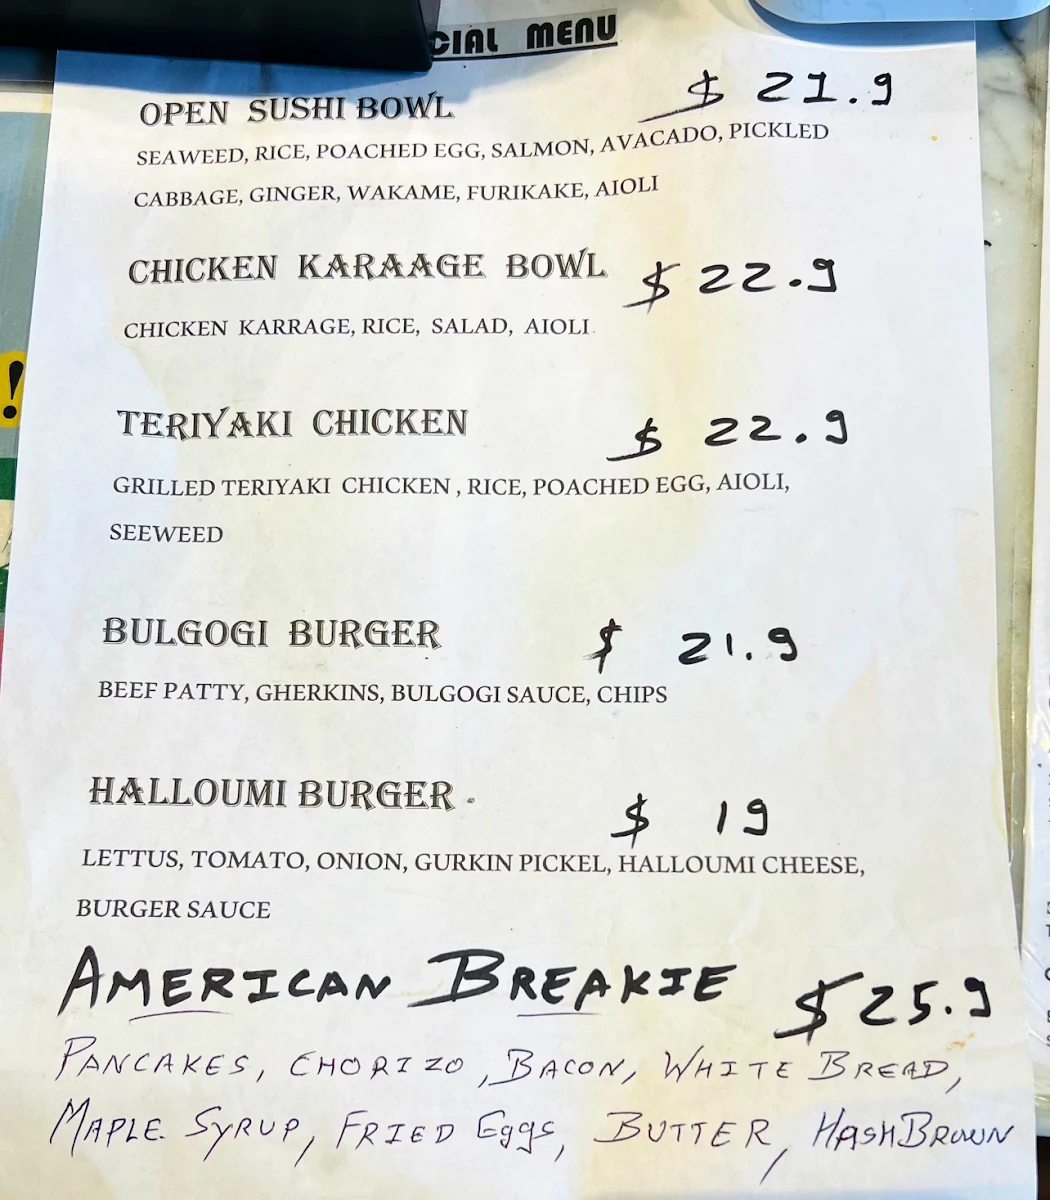 CIAL MENU
OPEN SUSHI BOWL $ 21.9
SEAWEED, RICE, POACHED EGG, SALMON, AVACADO, PICKLED
CABBAGE, GINGER, WAKAME, FURIKAKE, AIOLI
CHICKEN KARAAGE BOWL $ 22.9
CHICKEN KARRAGE, RICE, SALAD, AIOLI.
TERIYAKI CHICKEN $ 22.9
GRILLED TERIYAKI CHICKEN , RICE, POACHED EGG, AIOLI,
SEEWEED
BULGOGI BURGER $ 21.9
BEEF PATTY, GHERKINS, BULGOGI SAUCE, CHIPS
HALLOUMI BURGER . $ 19
LETTUS, TOMATO, ONION, GURKIN PICKEL, HALLOUMI CHEESE,
BURGER SAUCE
AMERICAN BREAKIE $25.9
PANCAKES, CHORIZO, BACON, WHITE BREAD,
MAPLE SYRUP, FRIED Eggs, BUTTER, HASHBROWN
!